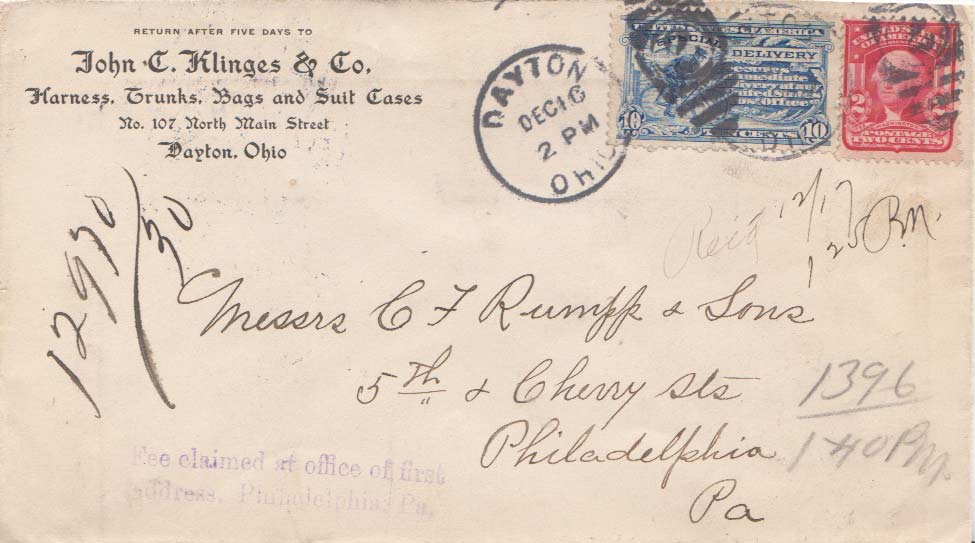 RETURN AFTER FIVE DAYS TO
John C. Klinges & Co.
Harness, Trunks, Bags and Suit Cases
No. 107 North Main Street
Dayton, Ohio
DAYTON
DEC 16
2 PM
OHIO
UNITED STATES OF AMERICA
SPECIAL DELIVERY
10 TEN CENTS 10
UNITED STATES
OF AMERICA
2
POSTAGE
TWO CENTS
12970/30
Rec'd 12/17
1 20 P.M.
Messrs C F Rumpp & Sons
5th & Cherry Sts
Philadelphia
Pa
1396
1 40 PM
Fee claimed at office of first
address, Philadelphia, Pa.